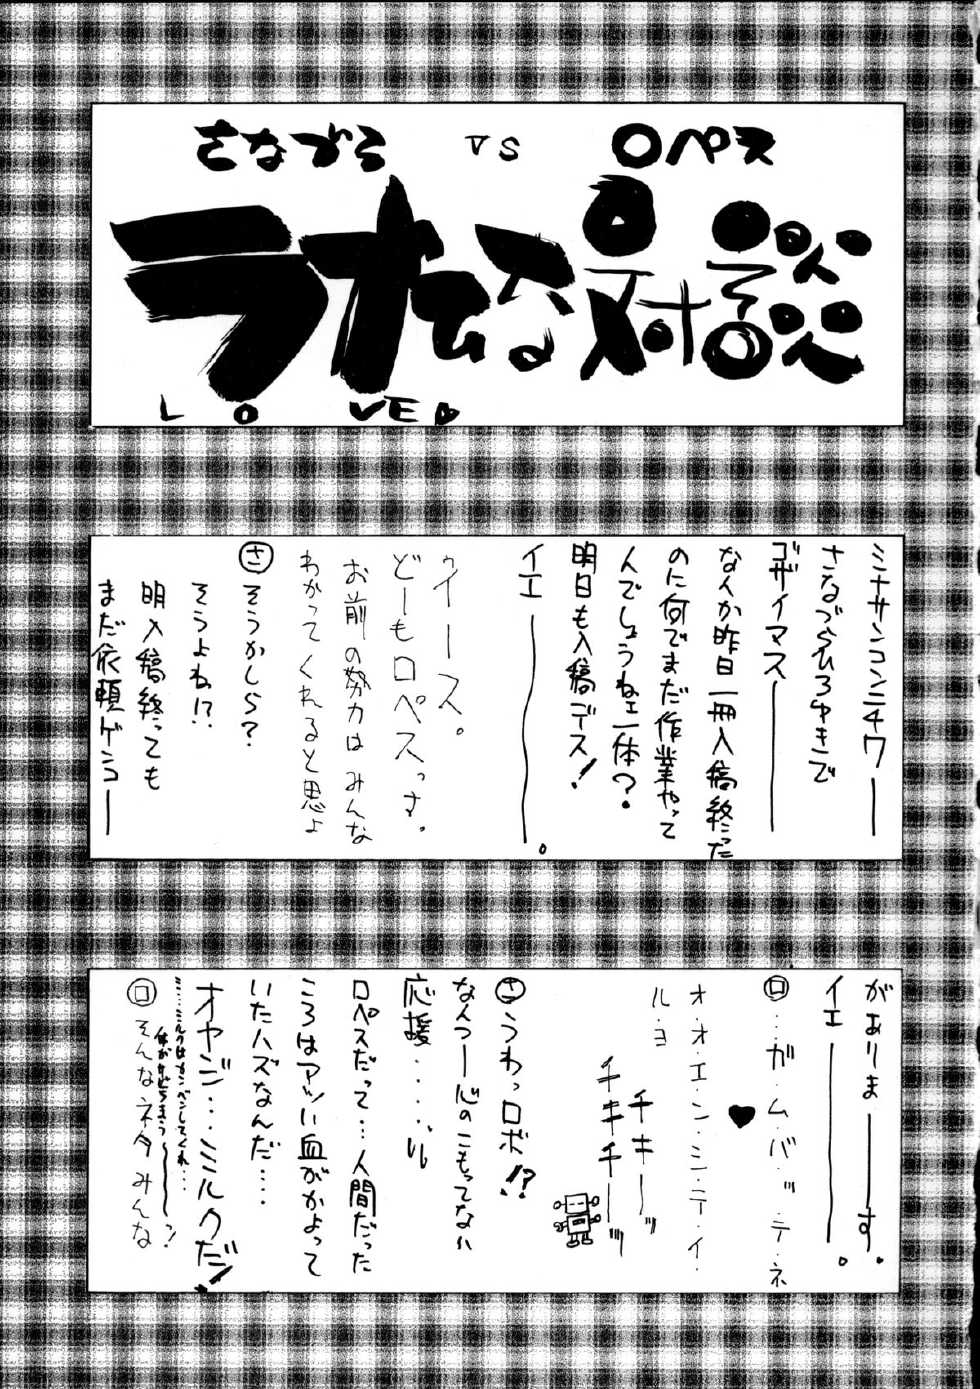 さなづら VS ロペス
ラオむろ対談
LOVED
ミナサンコンニチワー
さなづらひろゆきで
ゴザイマスー
なんか昨日一冊入稿終った
のに何でまだ作業やって
んでしょうねェ一体?
明日も入稿デス!
イエー。
ゥイース。
どーもロペスっす。
お前の努力はみんな
わかってくれると思よ
さ そうかしら?
そうよね!?
明入稿終っても
まだ依頼ゲンコー
がありまーす。
イエー。
ロ …ガ・ム・バ・ッ・テ・ネ
♥
オ・オ・エ・ン・シ・テ・イ・
ル・ヨ
チキーッ
チキチーッ
さ うわっロボ!?
なんつー心のこもってない
応援・・・・・
ロペスだって…人間だった
ころはアツい血がかよって
いたハズなんだ‥‥
オヤジ…ミルクだ!
ミ…ミルクはカンベンしてくれ…
体がサビちまうー!
ロ そんなネタみんな